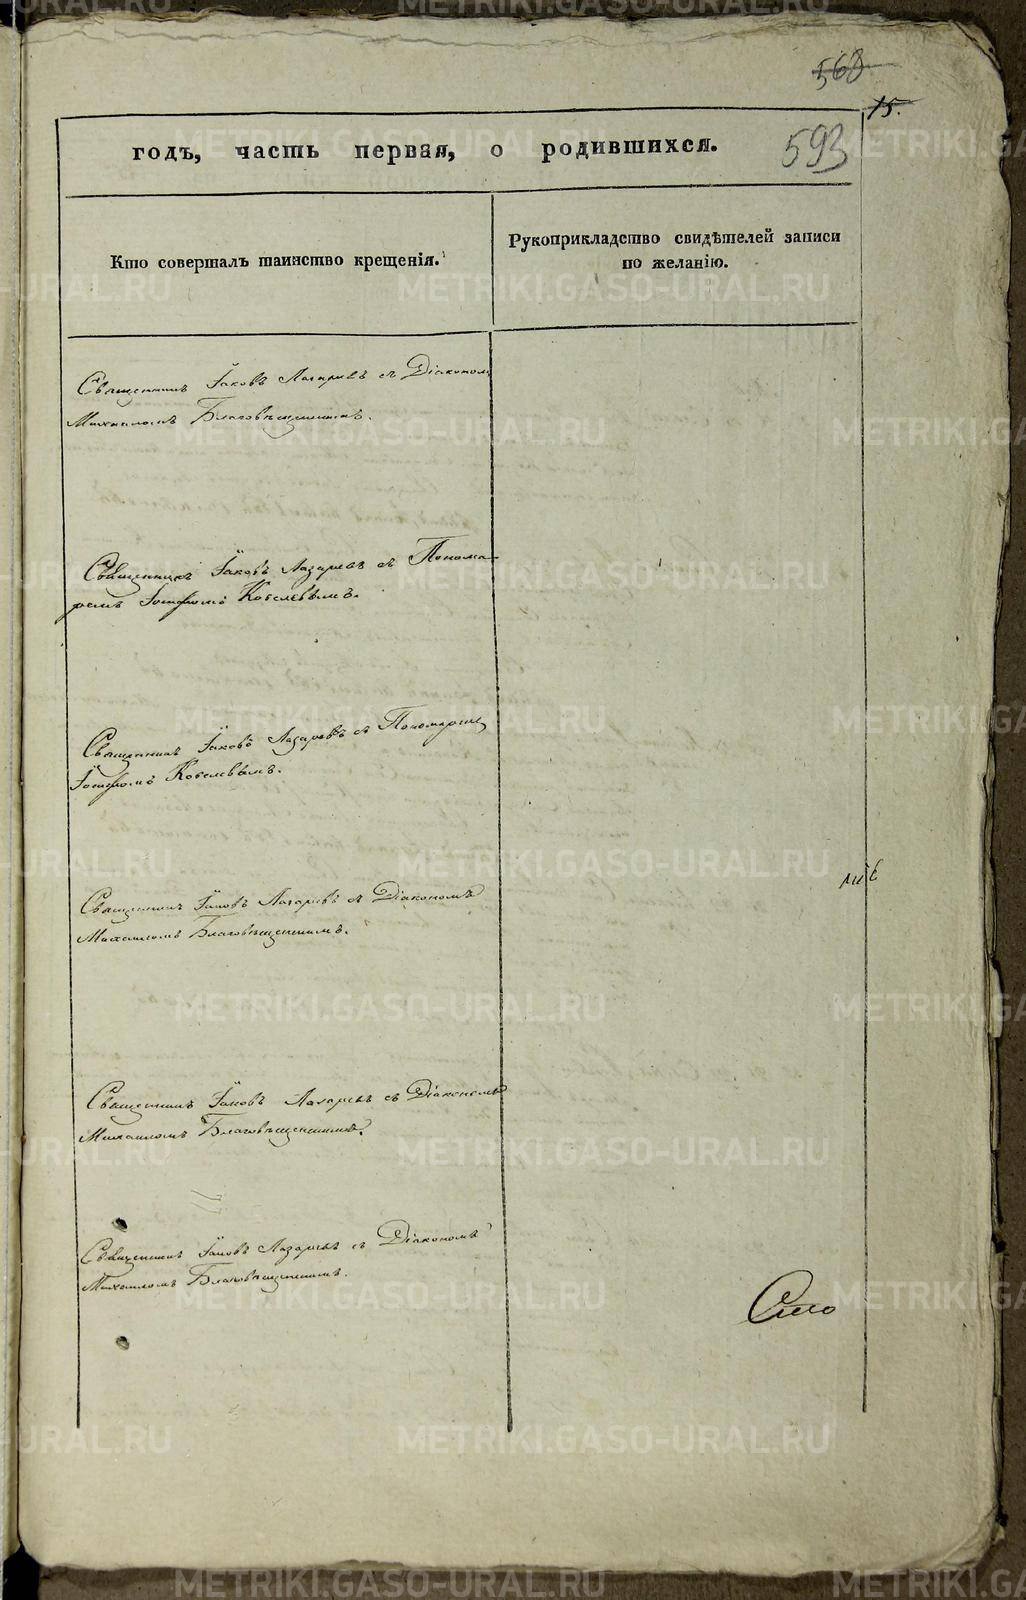 568
15.
593
годъ, часть первая, о родившихся.
Кто совершалъ таинство крещенія.
Рукоприкладство свидѣтелей записи
по желанію.
Священникъ Іаковъ Лазаревъ съ Діакономъ
Михаиломъ Благовѣщенскимъ.
Священникъ Іаковъ Лазаревъ съ Понома-
ремъ Іосифомъ Кобелевымъ.
Священникъ Іаковъ Лазаревъ съ Пономаремъ
Іосифомъ Кобелевымъ.
Священникъ Іаковъ Лазаревъ съ Діакономъ
Михаиломъ Благовѣщенскимъ.
Священникъ Іаковъ Лазаревъ съ Діакономъ
Михаиломъ Благовѣщенскимъ.
Священникъ Іаковъ Лазаревъ съ Діакономъ
Михаиломъ Благовѣщенскимъ.
METRIKI.GASO-URAL.RU